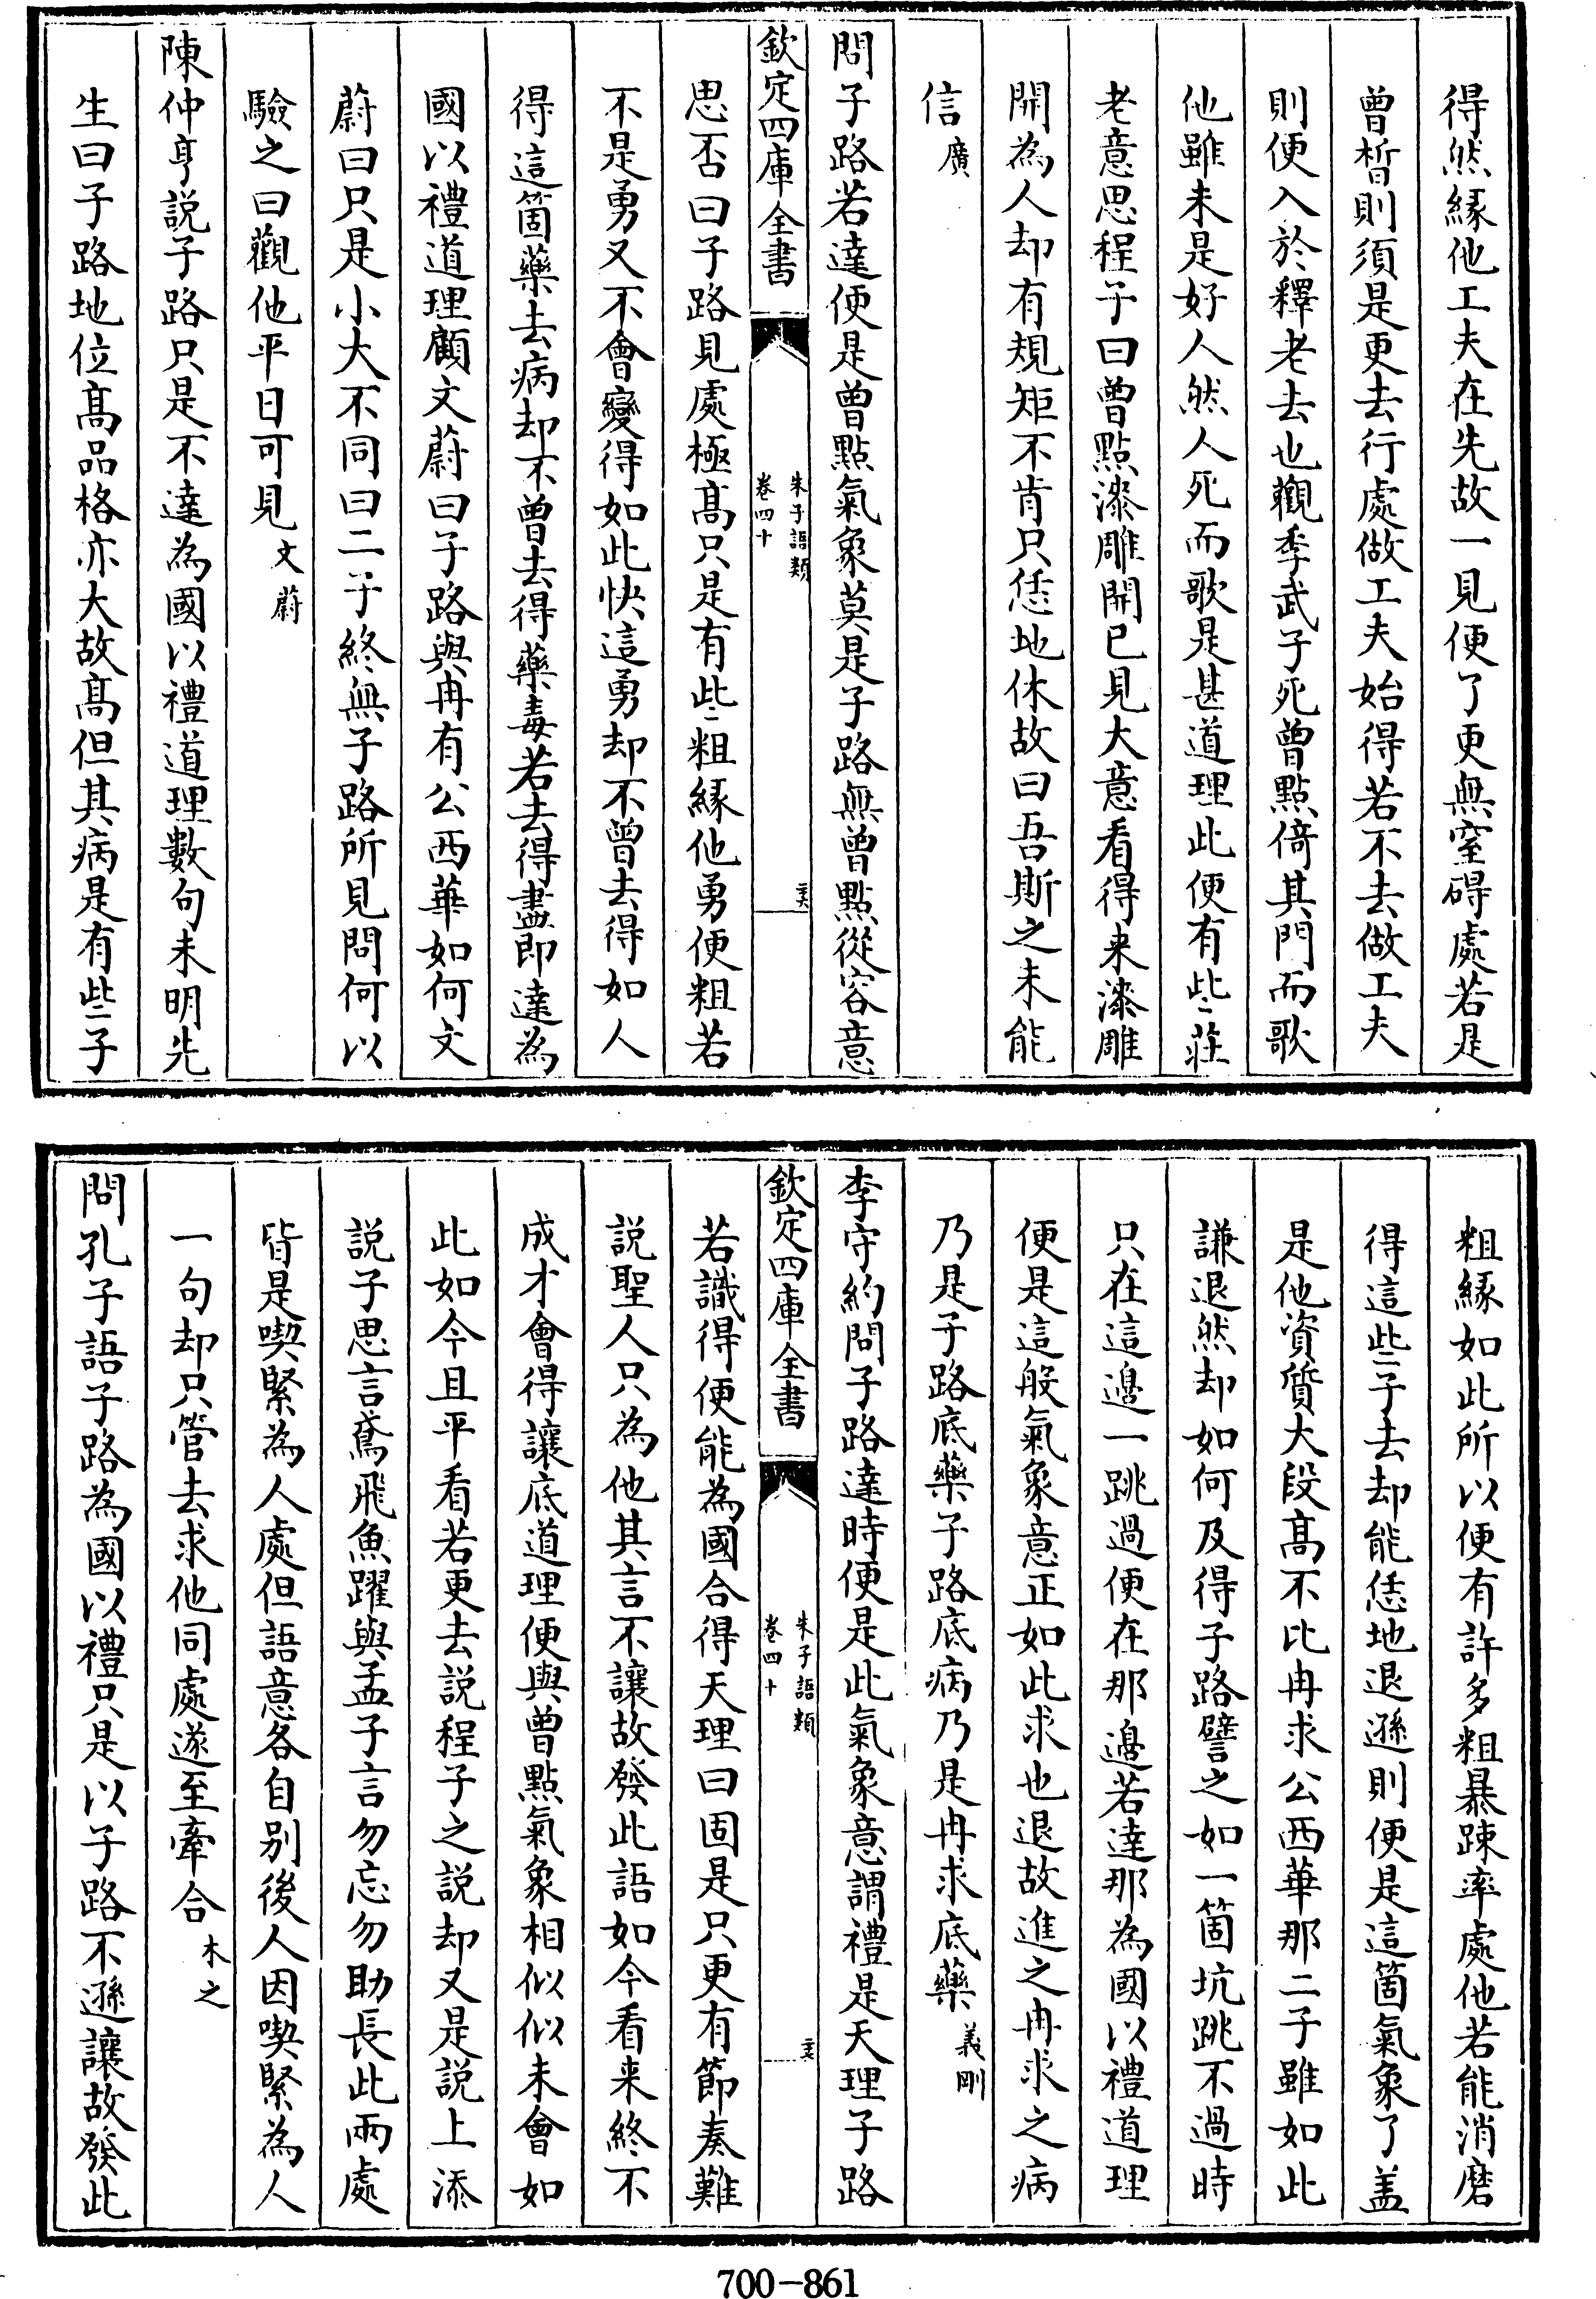 得然緣他工夫在先故一見便了更無窒碍處若是
曾晳則須是更去行處做工夫始得若不去做工夫
則便入於釋老去也觀季武子死曾點倚其門而歌
他雖未是好人然人死而歌是甚道理此便有些莊
老意思程子曰曾點漆雕開已見大意看得来漆雕
開為人却有規矩不肯只恁地休故曰吾斯之未能
信廣
問子路若達便是曾點氣象莫是子路無曾點從容意
欽定四庫全書
朱子語類
卷四十
思否曰子路見處極髙只是有些粗緣他勇便粗若
不是勇又不會變得如此快這勇却不曾去得如人
得這箇藥去病却不曾去得藥毒若去得盡即達為
國以禮道理顧文蔚曰子路與冉有公西華如何文
蔚曰只是小大不同曰二子終無子路所見問何以
驗之曰觀他平日可見文蔚
陳仲亨説子路只是不達為國以禮道理數句未明先
生曰子路地位髙品格亦大故髙但其病是有些子
粗緣如此所以便有許多粗暴踈率處他若能消磨
得這些子去却能恁地退遜則便是這箇氣象了盖
是他資質大段髙不比冉求公西華那二子雖如此
謙退然却如何及得子路譬之如一箇坑跳不過時
只在這邉一跳過便在那邉若達那為國以禮道理
便是這般氣象意正如此求也退故進之冉求之病
乃是子路底藥子路底病乃是冉求底藥義剛
李守約問子路達時便是此氣象意謂禮是天理子路
欽定四庫全書
朱子語類
卷四十
若識得便能為國合得天理曰固是只更有節奏難
説聖人只為他其言不讓故發此語如今看来終不
成才會得讓底道理便與曾點氣象相似似未會如
此如今且平看若更去説程子之説却又是説上添
説子思言鳶飛魚躍與孟子言勿忘勿助長此兩處
皆是喫緊為人處但語意各自别後人因喫緊為人
一句却只管去求他同處遂至牽合木之
問孔子語子路為國以禮只是以子路不遜讓故發此
700-861